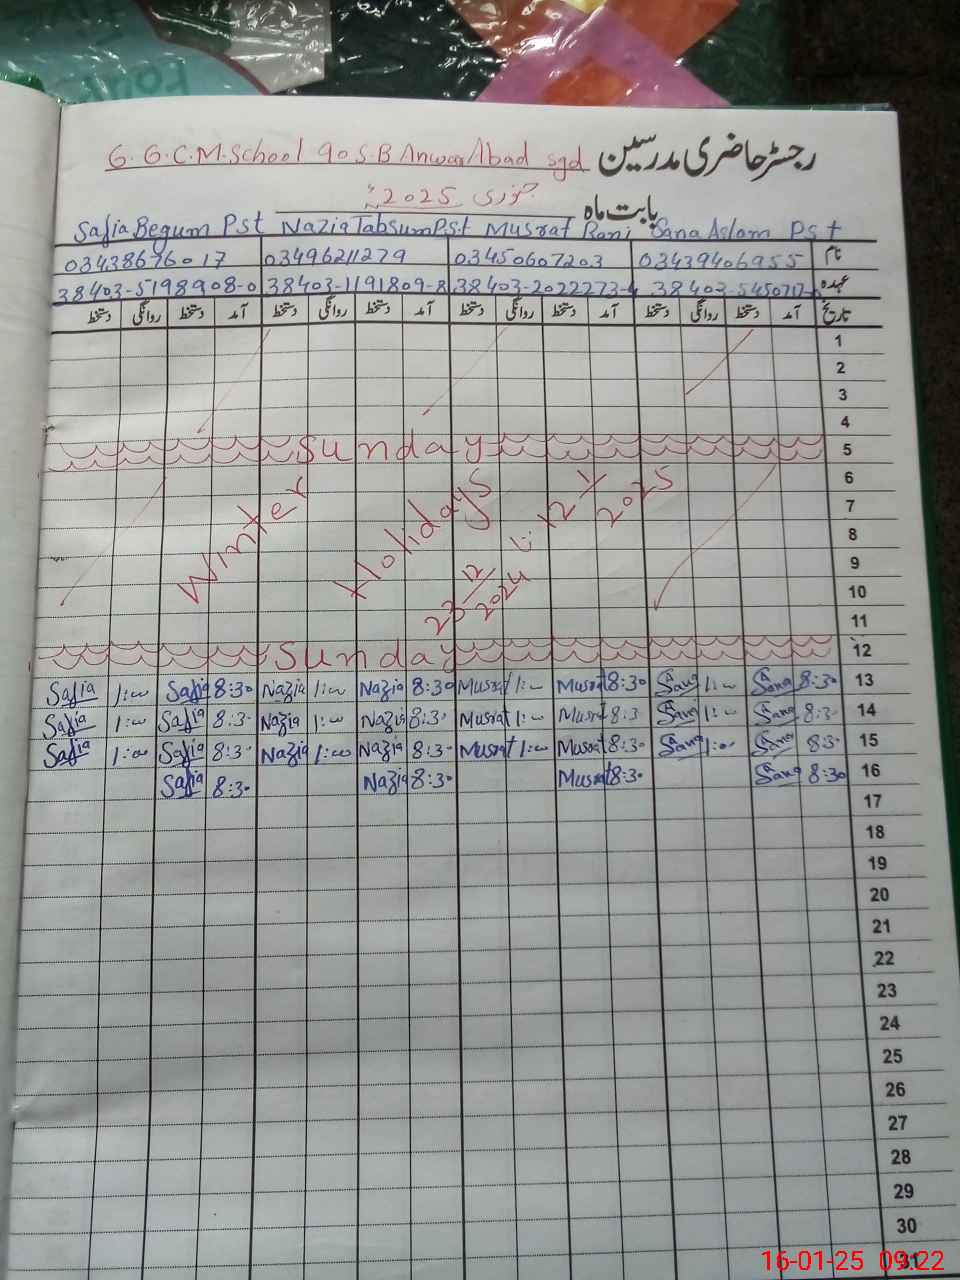 G.G.C.M.School 90 S.B Anwar Abad sgd رجسٹر حاضری مدرسین
بابت ماہ جنوری 2025ء
Safia Begum Pst Nazia Tabsum P.S.t Musrat Rani Sana Aslam P S t
نام 03438676017 03496211279 03450607203 03439406955
عہدہ 38403-5198908-0 38403-1191809-8 38403-2022273-4
تاریخ آمد دستخط روانگی دستخط آمد دستخط روانگی دستخط آمد دستخط روانگی دستخط آمد دستخط روانگی دستخط
1
2
3
4
Sunday 5
6
7
8
9
10
11
Winter Holidays
23 12/2024 تا 12 1/2025
Sunday 12
Safia 1:00 Safia 8:30 Nazia 1:00 Nazia 8:30 Musrat 1:00 Musrat 8:30 Sana 1:00 Sana 8:30 13
Safia 1:00 Safia 8:30 Nazia 1:00 Nazia 8:30 Musrat 1:00 Musrat 8:30 Sana 1:00 Sana 8:30 14
Safia 1:00 Safia 8:30 Nazia 1:00 Nazia 8:30 Musrat 1:00 Musrat 8:30 Sana 1:00 Sana 8:30 15
Safia 8:30 Nazia 8:30 Musrat 8:30 Sana 8:30 16
17
18
19
20
21
22
23
24
25
26
27
28
29
30
31
16-01-25 09:22